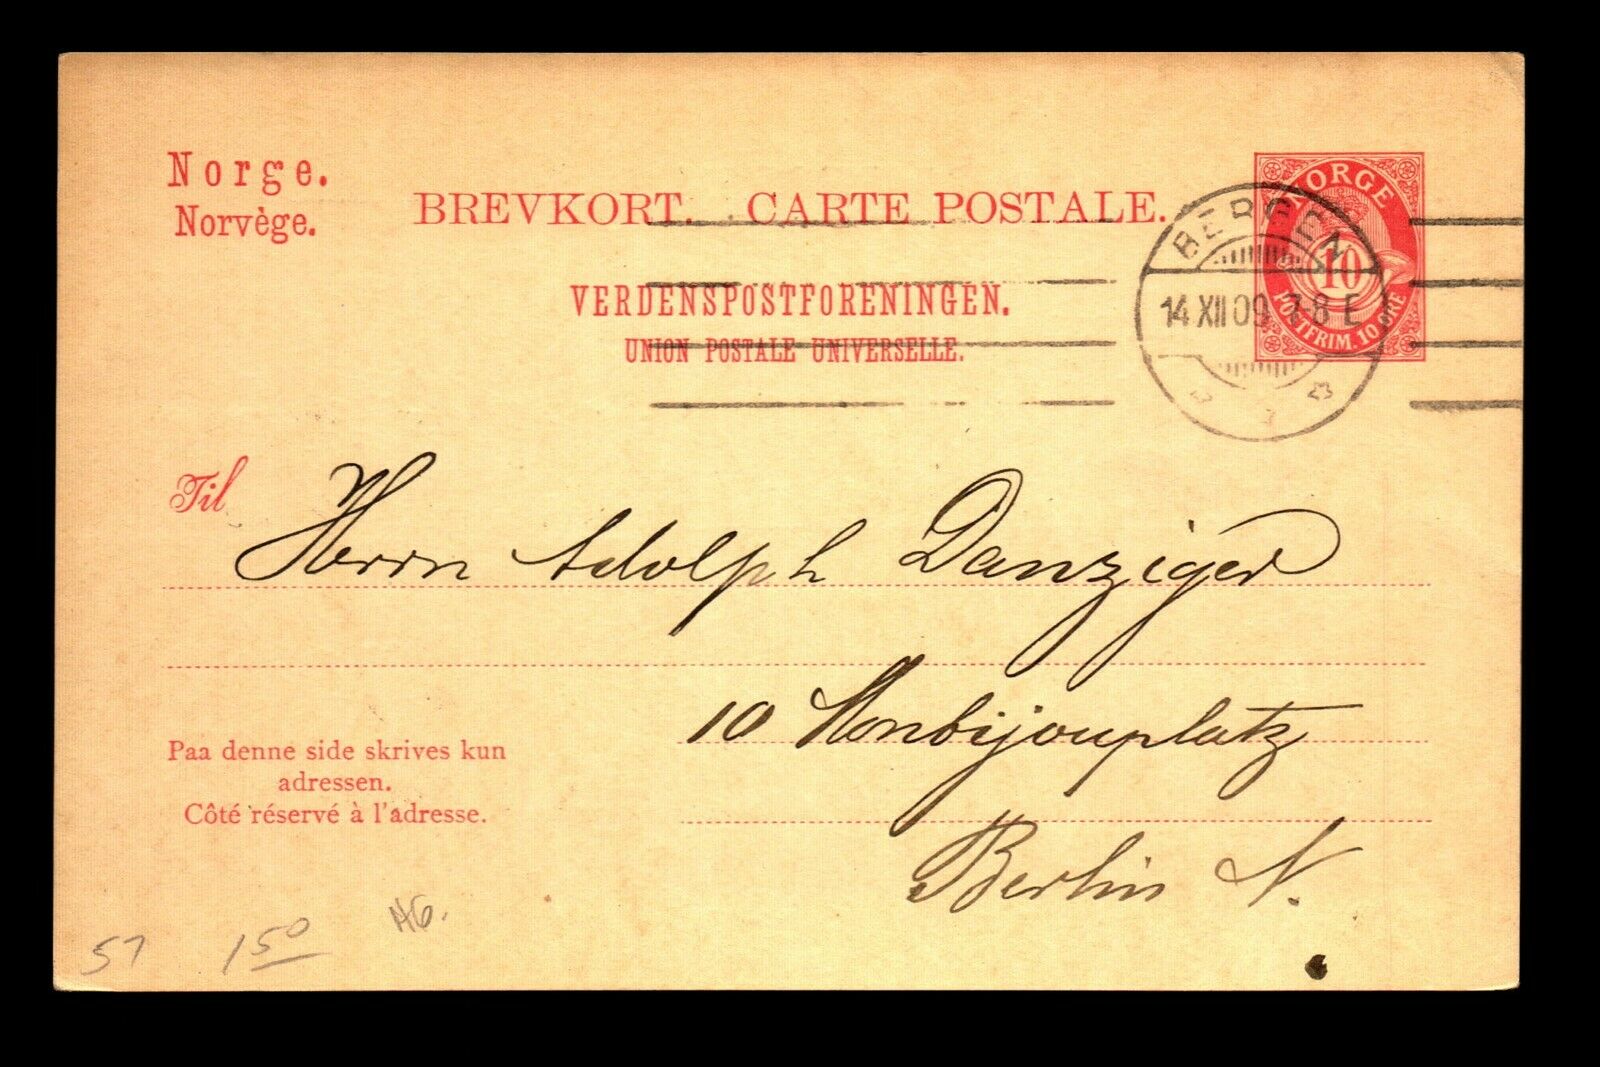 Norge.
Norvège.
BREVKORT. CARTE POSTALE.
VERDENSPOSTFORENINGEN.
UNION POSTALE UNIVERSELLE.
NORGE
10
POSTFRIM. 10 ØRE
BERGEN
14 XII 09 7-8 E
1
Til
Herrn Adolph Danziger
10 Monbijouplatz
Berlin N.
Paa denne side skrives kun
adressen.
Côté réservé à l'adresse.
57 150 HG.